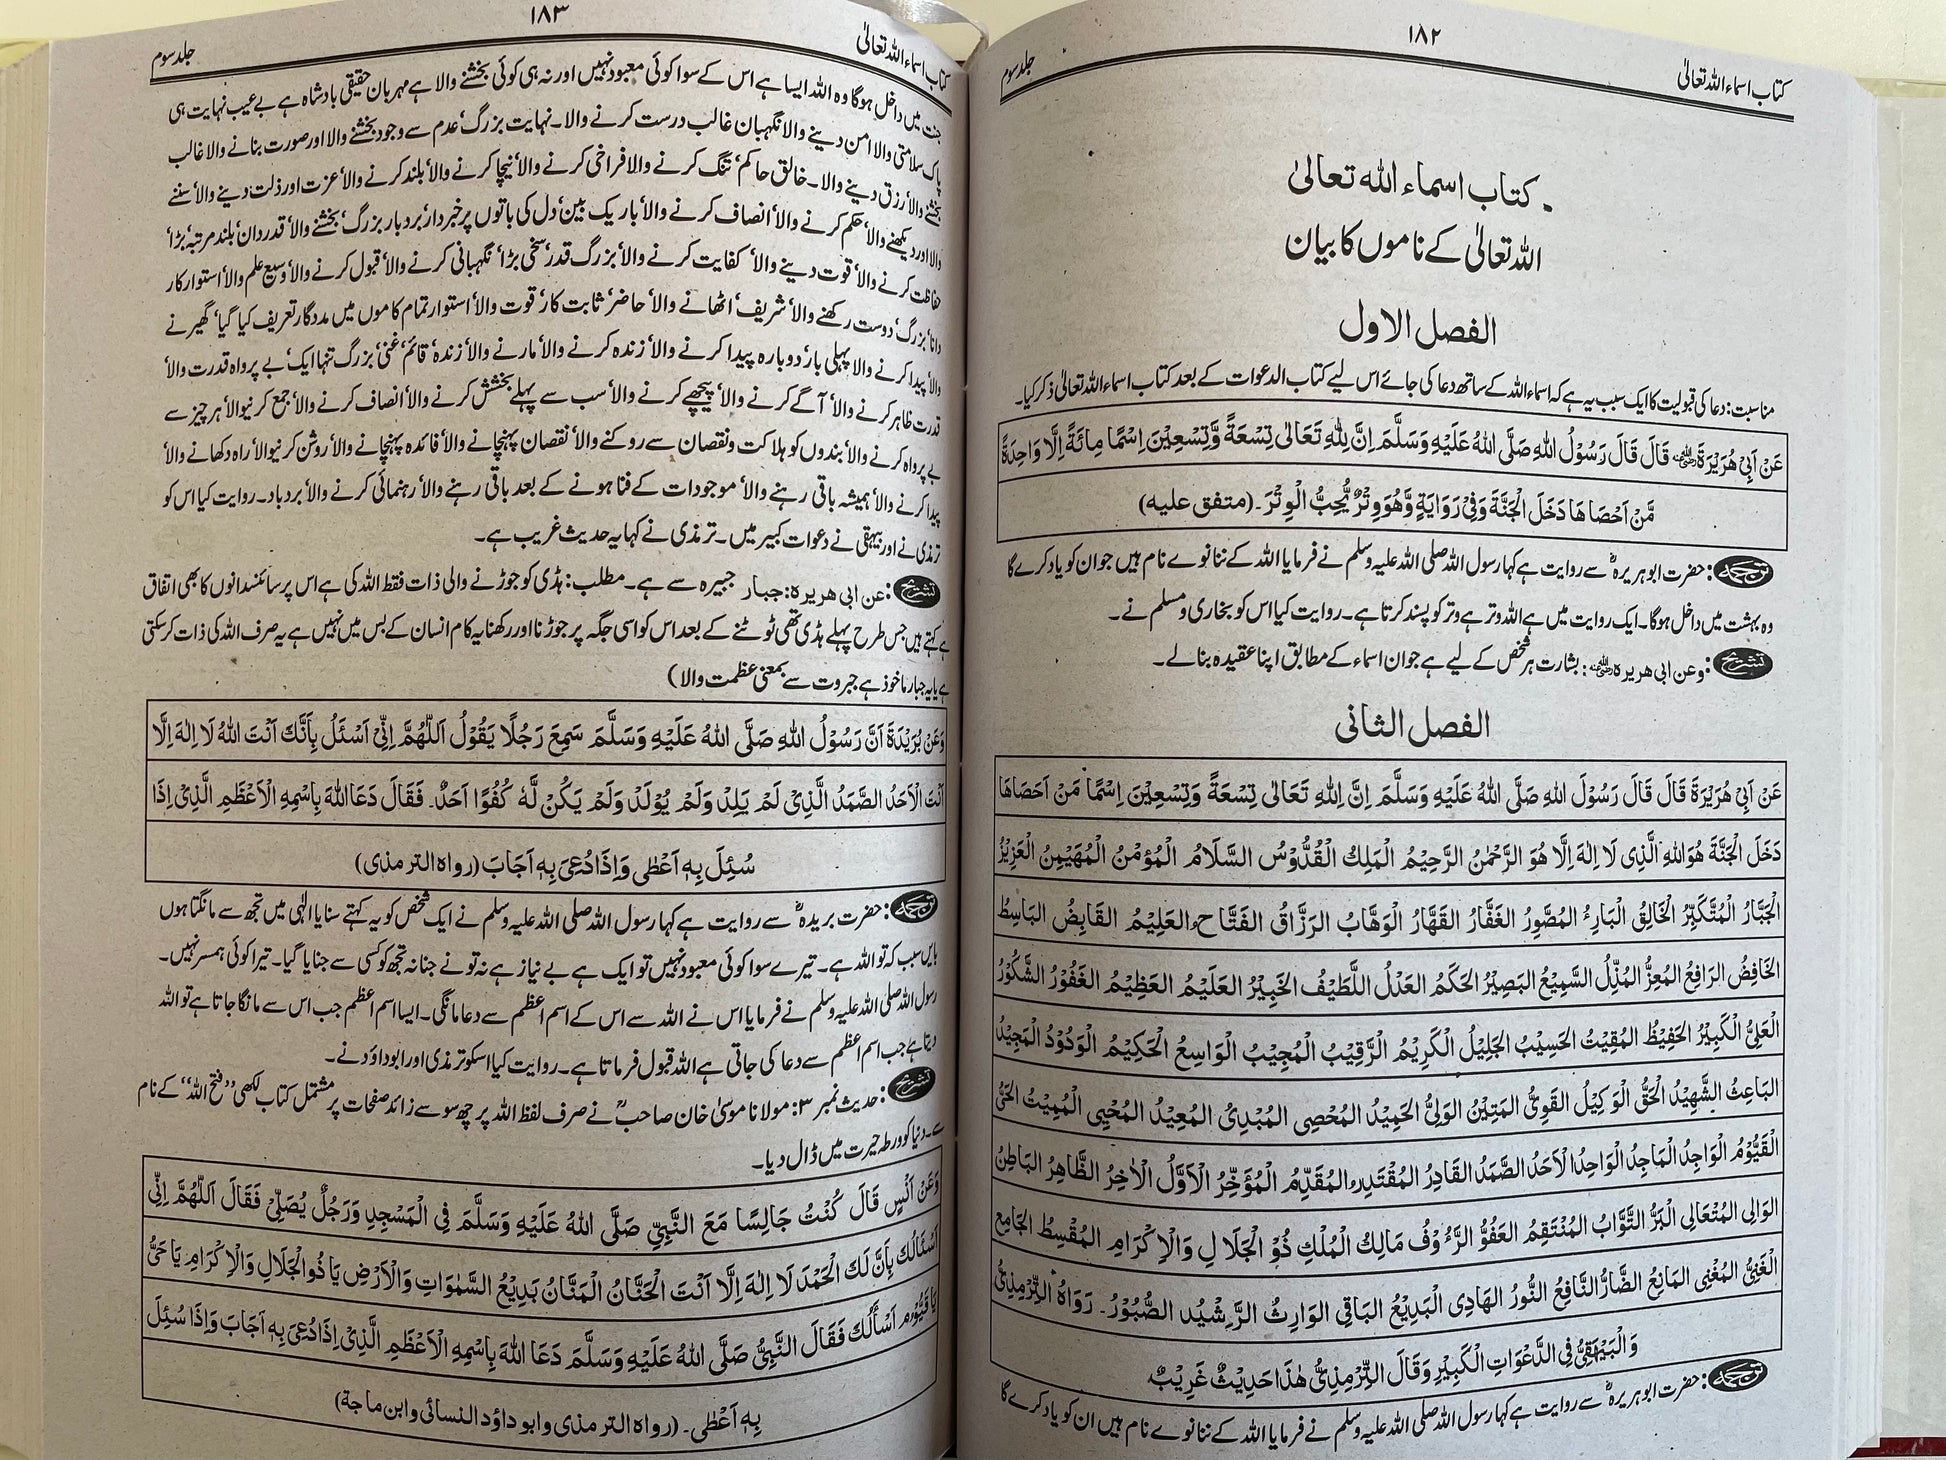 ۱۸۲
کتاب اسماء اللہ تعالیٰ
جلد سوم
کتاب اسماء اللہ تعالیٰ
اللہ تعالیٰ کے ناموں کا بیان
الفصل الاول
مناسبت: دعا کی قبولیت کا ایک سبب یہ ہے کہ اسماء اللہ کے ساتھ دعا کی جائے اس لیے کتاب الدعوات کے بعد کتاب اسماء اللہ تعالیٰ ذکر کیا۔
عَنْ اَبِیْ هُرَیْرَةَ قَالَ قَالَ رَسُوْلُ اللهِ صَلَّی اللهُ عَلَیْهِ وَسَلَّمَ اِنَّ لِلّٰهِ تَعَالٰی تِسْعَةً وَّتِسْعِیْنَ اِسْمًا مِائَةً اِلَّا وَاحِدَةً
مَّنْ اَحْصَاهَا دَخَلَ الْجَنَّةَ وَفِیْ رَوَایَةٍ وَّهُوَ وِتْرٌ یُّحِبُّ الْوِتْرَ۔ (متفق علیه)
ترجمہ: حضرت ابو ہریرہؓ سے روایت ہے کہا رسول اللہ صلی اللہ علیہ وسلم نے فرمایا اللہ کے ننانوے نام ہیں جو ان کو یاد کرے گا
وہ بہشت میں داخل ہوگا۔ ایک روایت میں ہے اللہ وتر ہے وتر کو پسند کرتا ہے۔ روایت کیا اس کو بخاری و مسلم نے۔
تشریح: وعن ابی هریرة: بشارت ہر شخص کے لیے ہے جو ان اسماء کے مطابق اپنا عقیدہ بنالے۔
الفصل الثانی
عَنْ اَبِیْ هُرَیْرَةَ قَالَ قَالَ رَسُوْلَ اللهِ صَلَّی اللهُ عَلَیْهِ وَسَلَّمَ اِنَّ لِلّٰهِ تَعَالٰی تِسْعَةً وَتِسْعِیْنَ اِسْمًا مَنْ اَحَصَاهَا
دَخَلَ الْجَنَّةَ هُوَ اللهِ الَّذِی لَا اِلٰهَ اِلَّا هُوَ الرَّحْمٰنُ الرَّحِیْمُ الْمَلِكُ الْقُدُّوْسُ السَّلَامُ الْمُؤْمِنُ الْمُهَیْمِنُ الْعَزِیْزُ
الْجَبَّارُ الْمُتَكَبِّرُ الْخَالِقُ الْبَارِءُ الْمُصَّوِرُ الْغَفَّارُ الْقَهَّارُ الْوَهَّابُ الرَّزَّاقُ الْفَتَّاحُ الْعَلِیْمُ الْقَابِضُ الْبَاسِطُ
الْخَافِضُ الرَّافِعُ الْمُعِزُّ الْمُذِّلُ السَّمِیْعُ الْبَصِیْرُ الْحَكَمُ الْعَدْلُ اللَّطِیْفُ الْخَبِیْرُ الْعَلَیْمُ الْعَظِیْمُ الْغَفُوْرُ الشَّكُوْرُ
الْعَلِیُّ الْكَبِیْرُ الْحَفِیْظُ الْمُقِیْتُ الْحَسِیْبُ الْجَلِیْلُ الْكَرِیْمُ الرَّقِیْبُ الْمُجِیْبُ الْوَاسِعُ الْحَكِیْمُ الْوَدُوْدُ الْمَجِیْدُ
الْبَاعِثُ الشَّهِیْدُ الْحَقُّ الْوَكِیْلُ الْقَوِیُّ الْمَتِیْنُ الْوَلِیُّ الْحَمِیْدُ الْمُحْصِی الْمُبْدِئُ الْمُعِیْدُ الْمُحْیِی الْمُمِیْتُ الْحَیُّ
الْقَیُّوْمُ الْوَاجِدُ الْمَاجِدُ الْوَاحِدُ الْاَحَدُ الصَّمَدُ الْقَادِرُ الْمُقْتَدِرُ الْمُقَدِّمُ الْمُؤَخِّرُ الْاَوَّلُ الْاٰخِرُ الظَّاهِرُ الْبَاطِنُ
الْوَالِی الْمُتَعَالِی الْبَرُّ التَّوَّابُ الْمُنْتَقِمُ الْعَفُوُّ الرَّءُوْفُ مَالِكُ الْمُلْكِ ذُوْ الْجَلَالِ وَالْاِكْرَامِ الْمُقْسِطُ الْجَامِعُ
الْغَنِیُّ الْمُغْنِی الْمَانِعُ الضَّارُّ النَّافِعُ النُّوْرُ الْهَادِی الْبَدِیْعُ الْبَاقِی الْوَارِثُ الرَّشِیْدُ الصَّبُوْرُ۔ رَوَاهُ التِّرْمِذِیُّ
وَالْبَیْهَقِیُّ فِی الدَّعْوَاتِ الْكَبِیْرِ وَقَالَ التِّرْمِذِیُّ هٰذَا حَدِیْثٌ غَرِیْبٌ
ترجمہ: حضرت ابو ہریرہؓ سے روایت ہے کہا رسول اللہ صلی اللہ علیہ وسلم نے فرمایا اللہ کے ننانوے نام ہیں ان کو یاد کرے گا
۱۸۳
کتاب اسماء اللہ تعالیٰ
جلد سوم
جنت میں داخل ہوگا وہ اللہ ایسا ہے اس کے سوا کوئی معبود نہیں اور نہ ہی کوئی بخشنے والا ہے مہربان حقیقی بادشاہ ہے بے عیب نہایت ہی
پاک سلامتی والا امن دینے والا نگہبان غالب درست کرنے والا۔ نہایت بزرگ، عدم سے وجود بخشنے والا اور صورت بنانے والا غالب
بخشنے والا، رزق دینے والا۔ خالق حاکم، تنگ کرنے والا فراخی کرنے والا، نیچا کرنے والا، بلند کرنے والا، عزت اور ذلت دینے والا، سننے
والا اور دیکھنے والا، حکم کرنے والا، انصاف کرنے والا، باریک بین، دل کی باتوں پر خبردار، بردبار بزرگ، بخشنے والا، قدردان، بلند مرتبہ، بڑا،
حفاظت کرنے والا، قوت دینے والا، کفایت کرنے والا، بزرگ قدر، سخی بڑا، نگہبانی کرنے والا، قبول کرنے والا، وسیع علم والا، استوار کار
دانا، بزرگ، دوست رکھنے والا، شریف، اٹھانے والا، حاضر، ثابت کار، قوت والا، استوار تمام کاموں میں مددگار تعریف کیا گیا، گھیرنے
والا، پیدا کرنے والا پہلی بار، دوبارہ پیدا کرنے والا، زندہ کرنے والا، مارنے والا، زندہ، قائم، غنی، بزرگ تنہا ایک، بے پرواہ قدرت والا،
قدرت ظاہر کرنے والا، آگے کرنے والا، پیچھے کرنے والا، سب سے پہلے بخشش کرنے والا، انصاف کرنے والا، جمع کرنیوالا، ہر چیز سے
بے پرواہ کرنے والا، بندوں کو ہلاکت و نقصان سے روکنے والا، نقصان پہنچانے والا، فائدہ پہنچانے والا، روشن کرنیوالا، راہ دکھانے والا،
پیدا کرنے والا، ہمیشہ باقی رہنے والا، موجودات کے فنا ہونے کے بعد باقی رہنے والا، رہنمائی کرنے والا، بردباد۔ روایت کیا اس کو
ترمذی نے اور بیہقی نے دعوات کبیر میں۔ ترمذی نے کہا یہ حدیث غریب ہے۔
تشریح: عن ابی هریرة: جبار جبیرہ سے ہے۔ مطلب: ہڈی کو جوڑنے والی ذات فقط اللہ کی ہے اس پر سائنسدانوں کا بھی اتفاق
ہے کہتے ہیں جس طرح پہلے ہڈی تھی ٹوٹنے کے بعد اس کو اسی جگہ پر جوڑنا اور رکھنا یہ کام انسان کے بس میں نہیں ہے یہ صرف اللہ کی ذات کر سکتی
ہے یا یہ جبار ماخوذ ہے جبروت سے بمعنی عظمت والا)
وَعَنْ بُرَیْدَةَ اَنَّ رَسُوْلُ اللهِ صَلَّی اللهُ عَلَیْهِ وَسَلَّمَ سَمِعَ رَجُلًا یَقُوْلُ اَللّٰهُمَّ اِنِّیْ اَسْئَلُ بِاَنَّكَ اَنْتَ اللهُ لَا اِلٰهَ اِلَّا
اَنْتَ الْاَحَدُ الصَّمَدُ الَّذِیْ لَمْ یَلِدْ وَلَمْ یُوْلَدْ وَلَمْ یَكُنْ لَّهٗ كُفُوًا اَحَدٌ۔ فَقَالَ دَعَا اللهَ بِاِسْمِهِ الْاَعْظَمِ الَّذِیْ اِذَا
سُئِلَ بِهٖ اَعْطٰی وَاِذَا دُعِیَ بِهٖ اَجَابَ (رواه الترمذی)
ترجمہ: حضرت بریدہؓ سے روایت ہے کہا رسول اللہ صلی اللہ علیہ وسلم نے ایک شخص کو یہ کہتے سنا یا الٰہی میں تجھ سے مانگتا ہوں
بایں سبب کہ تو اللہ ہے۔ تیرے سوا کوئی معبود نہیں تو ایک ہے بے نیاز ہے نہ تو نے جنا نہ تجھ کو کسی سے جنایا گیا۔ تیرا کوئی ہمسر نہیں۔
رسول اللہ صلی اللہ علیہ وسلم نے فرمایا اس نے اللہ سے اس کے اسم اعظم سے دعا مانگی۔ ایسا اسم اعظم جب اس سے مانگا جاتا ہے تو اللہ
دیتا ہے جب اسم اعظم سے دعا کی جاتی ہے اللہ قبول فرماتا ہے۔ روایت کیا اسکو ترمذی اور ابوداؤد نے۔
تشریح: حدیث نمبر ۳: مولانا موسیٰ خان صاحبؒ نے صرف لفظ اللہ پر چھ سو سے زائد صفحات پر مشتمل کتاب لکھی ”فتح اللہ“ کے نام
سے۔ دنیا کو ورطہ حیرت میں ڈال دیا۔
وَعَنْ اَنَسٍ قَالَ كُنْتُ جَالِسًا مَعَ النَّبِیِّ صَلَّی اللهُ عَلَیْهِ وَسَلَّمَ فِی الْمَسْجِدِ وَرَجُلٌ یُصَلِّیْ فَقَالَ اَللّٰهُمَّ اِنِّی
اَسْئَالُكَ بِاَنَّ لَكَ الْحَمْدَ لَا اِلٰهَ اِلَّا اَنْتَ الْحَنَّانُ الْمَنَّانُ بَدِیْعُ السَّمٰوَاتِ وَالْاَرْضِ یَا ذُوالْجَلَالِ وَالْاِكْرَامِ یَا حَیُّ
یَا قَیُّوْمُ اَسْأَلُكَ فَقَالَ النَّبِیُّ صَلَّی اللهُ عَلَیْهِ وَسَلَّمَ دَعَا اللهَ بِاِسْمِهِ الْاَعْظَمِ الَّذِیْ اِذَا دُعِیَ بِهٖ اَجَابَ وَاِذَا سُئِلَ
بِهٖ اَعْطٰی۔ (رواه الترمذی وابو داؤد النسائی وابن ماجة)